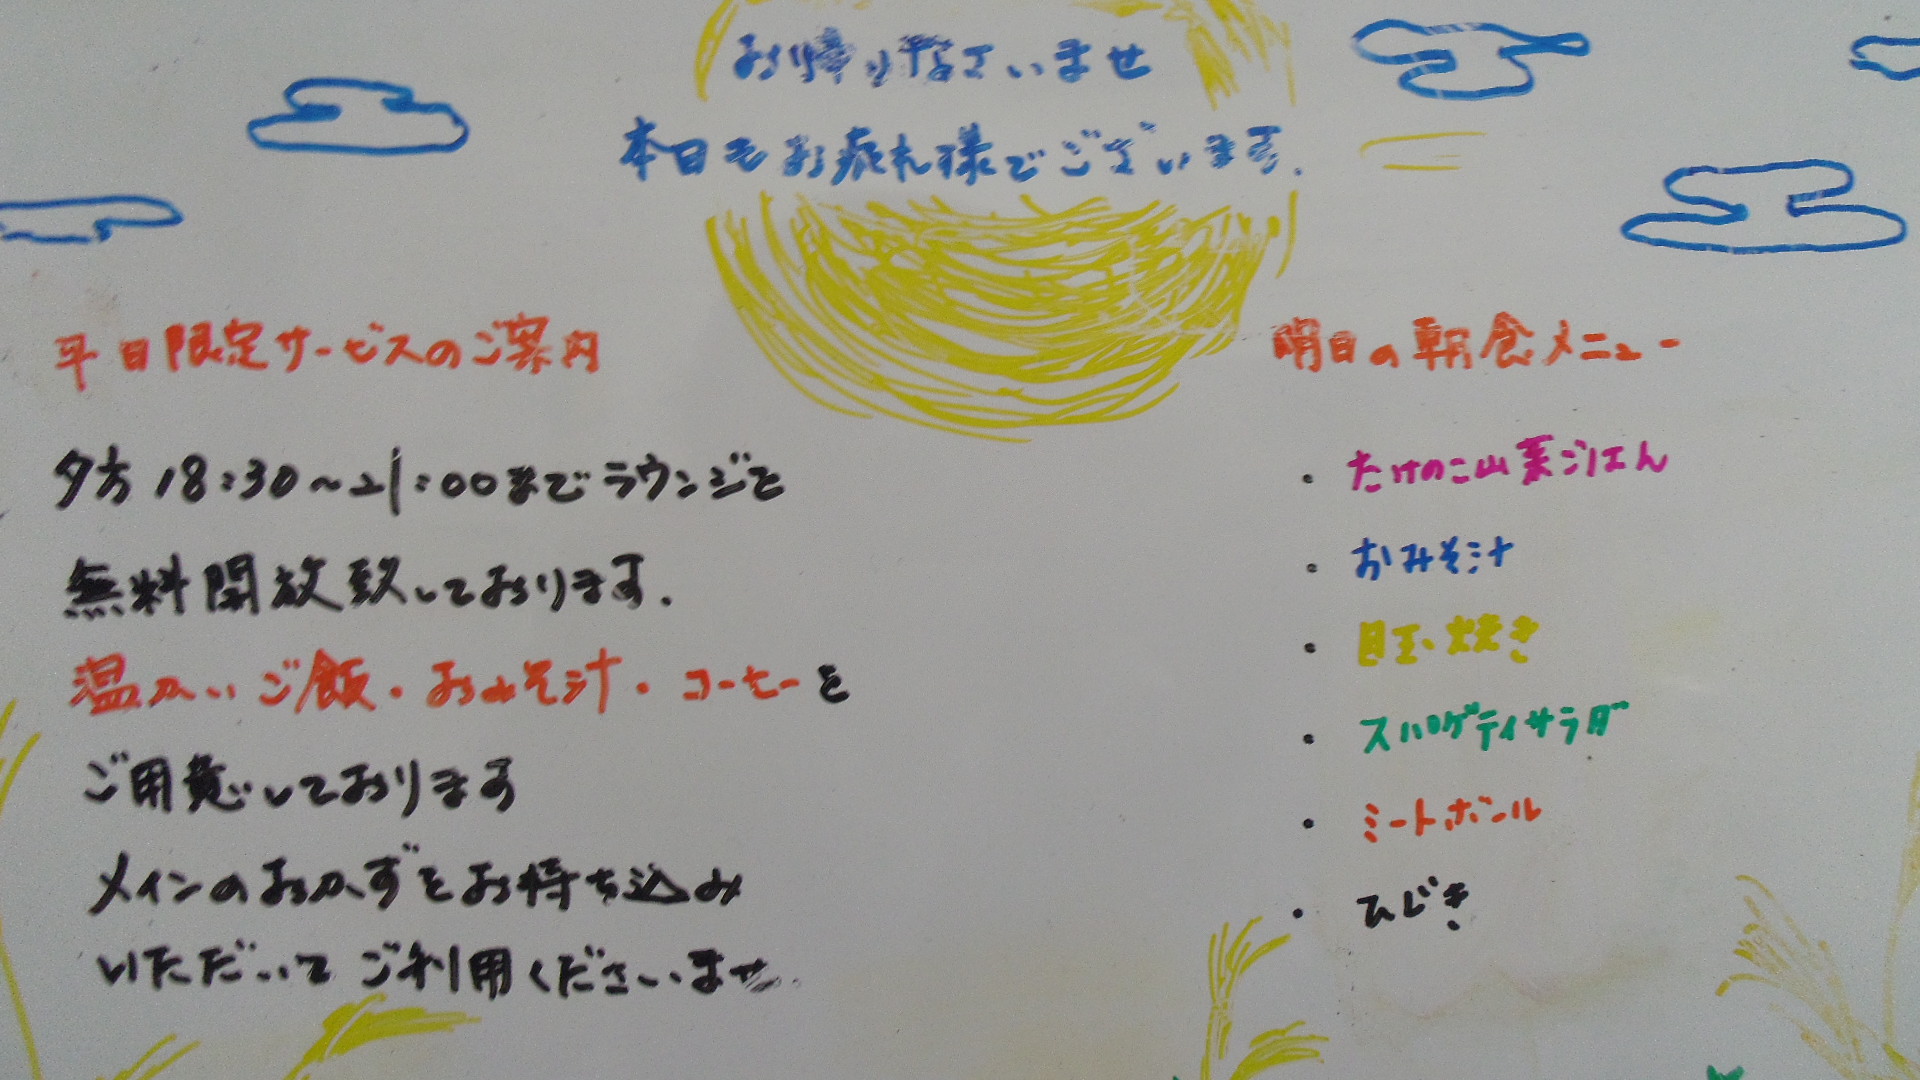 お帰りなさいませ
本日もお疲れ様でございます.
平日限定サービスのご案内
夕方18:30~21:00までラウンジを
無料開放致しております.
温かいご飯・おみそ汁・コーヒーを
ご用意しております
メインのおかずをお持ち込み
いただいてご利用くださいませ.
明日の朝食メニュー
・たけのこ山菜ごはん
・おみそ汁
・目玉焼き
・スパゲティサラダ
・ミートボール
・ひじき